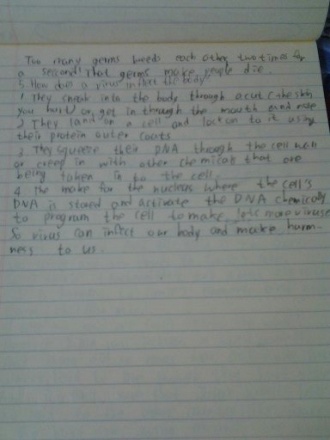 Too many germs breeds each other two times by
a second! That germs make people die.
5 How does a virus infect the body
1 They sneak into the body through a cut (the skin
you hurt) or get in through the mouth and nose
2 They land on a cell and lock on to it using
their protein outer coats
3 They squeeze their DNA through the cell wall
or creep in with other chemicals that are
being taken in to the cell.
4 The make for the nucleus where the cell's
DNA is stored and activate the DNA chemically
to program the cell to make lots more viruse
So virus can infect our body and make harm-
ness to us.